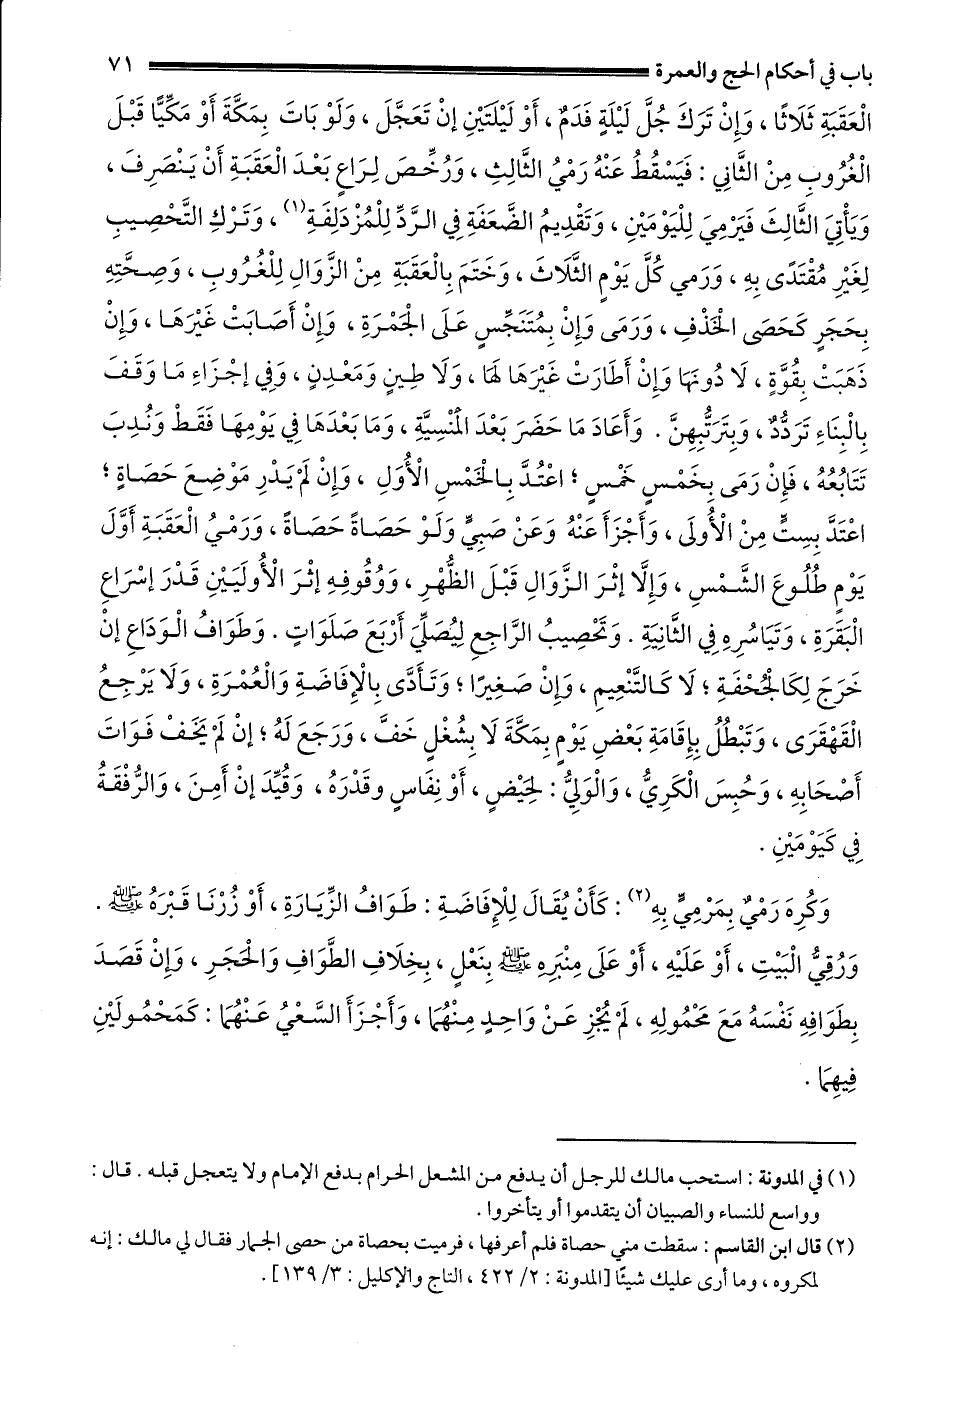 باب في أحكام الحج والعمرة ٧١
الْعَقَبَةِ ثَلَاثًا ، وَإِنْ تَرَكَ جُلَّ لَيْلَةٍ فَدَمٌ ، أَوْ لَيْلَتَيْنِ إِنْ تَعَجَّلَ ، وَلَوْ بَاتَ بِمَكَّةَ أَوْ مَكِّيًّا قَبْلَ
الْغُرُوبِ مِنْ الثَّانِي : فَيَسْقُطُ عَنْهُ رَمْيُ الثَّالِثِ ، وَرُخِّصَ لِرَاعٍ بَعْدَ الْعَقَبَةِ أَنْ يَنْصَرِفَ ،
وَيَأْتِيَ الثَّالِثَ فَيَرْمِيَ لِلْيَوْمَيْنِ ، وَتَقْدِيمُ الضَّعَفَةِ فِي الرَّدِّ لِلْمُزْدَلِفَةِ(١) ، وَتَرْكُ التَّحْصِيبِ
لِغَيْرِ مُقْتَدًى بِهِ ، وَرَمي كُلَّ يَوْمٍ الثَّلَاثَ ، وَخَتَمَ بِالْعَقَبَةِ مِنْ الزَّوَالِ لِلْغُرُوبِ ، وَصِحَّتِهِ
بِحَجَرٍ كَحَصَى الْخَذْفِ ، وَرَمَى وَإِنْ بِمُتَنَجِّسٍ عَلَى الْجَمْرَةِ ، وَإِنْ أَصَابَتْ غَيْرَهَا ، وَإِنْ
ذَهَبَتْ بِقُوَّةٍ ، لَا دُونَهَا وَإِنْ أَطَارَتْ غَيْرَهَا لَهَا ، وَلَا طِينٍ وَمَعْدِنٍ ، وَفِي إِجْزَاءِ مَا وَقَفَ
بِالْبِنَاءِ تَرَدُّدٌ ، وَبِتَرَتُّبِهِنَّ . وَأَعَادَ مَا حَضَرَ بَعْدَ الْمَنْسِيَّةِ ، وَمَا بَعْدَهَا فِي يَوْمِهَا فَقَطْ وَنُدِبَ
تَتَابُعُهُ ، فَإِنْ رَمَى بِخَمْسٍ خَمْسٍ ؛ اعْتُدَّ بِالْخَمْسِ الْأُوَلِ ، وَإِنْ لَمْ يَدْرِ مَوْضِعَ حَصَاةٍ ؛
اعْتَدَّ بِسِتٍّ مِنْ الْأُولَى ، وَأَجْزَأَ عَنْهُ وَعَنْ صَبِيٍّ وَلَوْ حَصَاةً حَصَاةً ، وَرَمْيُ الْعَقَبَةِ أَوَّلَ
يَوْمٍ طُلُوعَ الشَّمْسِ ، وَإِلَّا إِثْرَ الزَّوَالِ قَبْلَ الظُّهْرِ ، وَوُقُوفِهِ إِثْرَ الْأُولَيَيْنِ قَدْرَ إسْرَاعِ
الْبَقَرَةِ ، وَتَيَاسُرِهِ فِي الثَّانِيَةِ . وَتَحْصِيبُ الرَّاجِعِ لِيُصَلِّيَ أَرْبَعَ صَلَوَاتٍ . وَطَوَافُ الْوَدَاعِ إنْ
خَرَجَ لِكَالْجُحْفَةِ ؛ لَا كَالتَّنْعِيمِ ، وَإِنْ صَغِيرًا ؛ وَتَأَدَّى بِالْإِفَاضَةِ وَالْعُمْرَةِ ، وَلَا يَرْجِعُ
الْقَهْقَرَى ، وَتَبْطُلُ بِإِقَامَةِ بَعْضِ يَوْمٍ بِمَكَّةَ لَا بِشُغْلٍ خَفَّ ، وَرَجَعَ لَهُ ؛ إِنْ لَمْ يَخَفْ فَوَاتَ
أَصْحَابِهِ ، وَحُبِسَ الْكَرِيُّ ، وَالْوَلِيُّ : لِحَيْضٍ ، أَوْ نِفَاسٍ وقَدْرَهُ ، وَقُيِّدَ إِنْ أَمِنَ ، وَالرُّفْقَةُ
فِي كَيَوْمَيْنِ .
وَكُرِهَ رَمْيٌ بِمَرْمِيٍّ بِهِ(٢) : كَأَنْ يُقَالَ لِلْإِفَاضَةِ : طَوَافُ الزِّيَارَةِ ، أَوْ زُرْنَا قَبْرَهُ ﷺ .
وَرُقِيُّ الْبَيْتِ ، أَوْ عَلَيْهِ ، أَوْ عَلَى مِنْبَرِهِ ﷺ بِنَعْلٍ ، بِخِلَافِ الطَّوَافِ وَالْحَجَرِ ، وَإِنْ قَصَدَ
بِطَوَافِهِ نَفْسَهُ مَعَ مَحْمُولِهِ ، لَمْ يُجْزِ عَنْ وَاحِدٍ مِنْهُمَا ، وَأَجْزَأَ السَّعْيُ عَنْهُمَا : كَمَحْمُولَيْنِ
فِيهِمَا .
(١) في المدونة : استحب مالك للرجل أن يدفع من المشعل الحرام بدفع الإمام ولا يتعجل قبله . قال :
وواسع للنساء والصبيان أن يتقدموا أو يتأخروا .
(٢) قال ابن القاسم : سقطت مني حصاة فلم أعرفها ، فرميت بحصاة من حصى الجمار فقال لي مالك : إنه
لمكروه ، وما أرى عليك شيئًا [المدونة : ٢/ ٤٢٢ ، التاج والإكليل : ٣/ ١٣٩] .